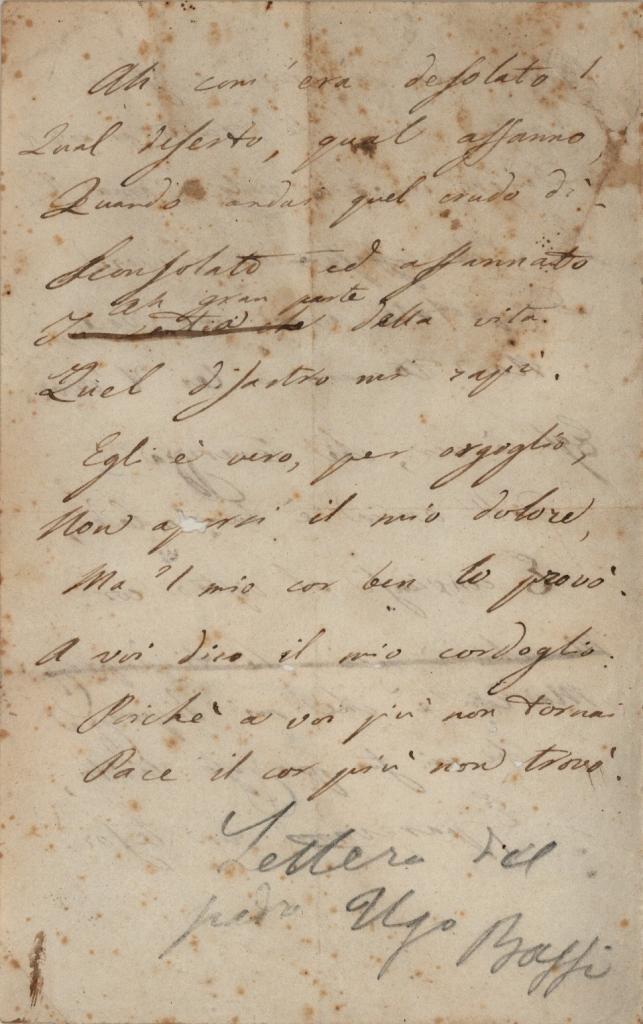 Ah com'era desolato!
Qual diserto, qual affanno,
Quando andai quel crudo dì.
Sconsolato ed affannato
Ah gran parte
della vita
Quel disastro mi rapì.
Egli è vero, per orgoglio,
Non apersi il mio dolore,
Ma 'l mio cor ben lo provò.
A voi dico il mio cordoglio.
Poichè a voi più non tornai
Pace il cor più non trovò.
Lettera del
padre Ugo Bassi